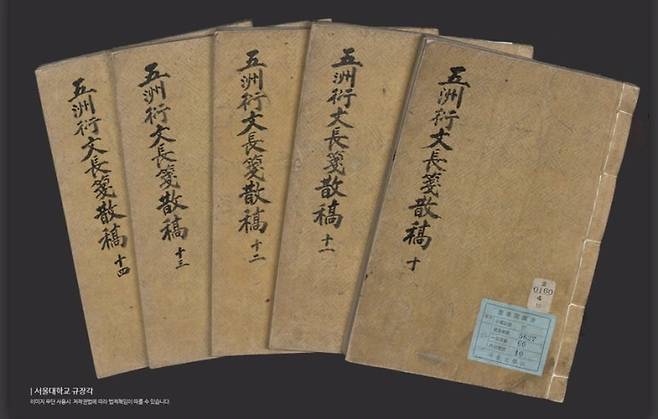 五洲衍文長箋散稿 十四
五洲衍文長箋散稿 十三
五洲衍文長箋散稿 十二
五洲衍文長箋散稿 十一
五洲衍文長箋散稿 十
0160
4
5627
60
10
| 서울대학교 규장각
이미지 무단 사용시 저작권법에 따라 법적책임이 따를 수 있습니다.